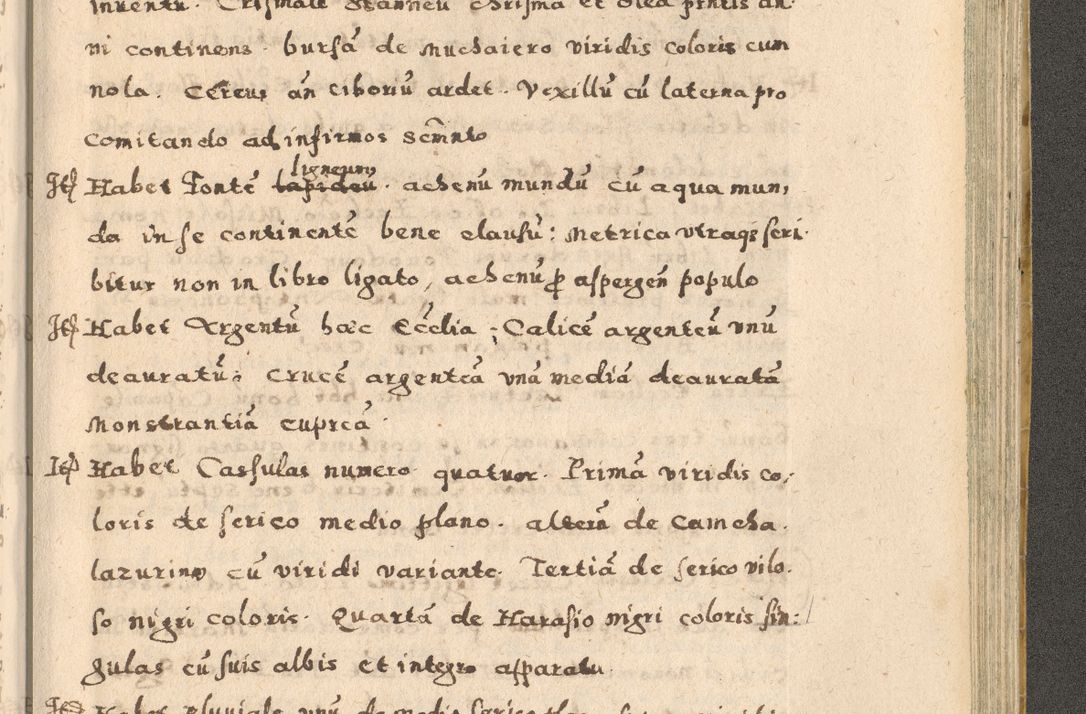 inventu. Crismale stanneu Chrisma et olea pntis an-
ni continens. bursā de Muchaiero viridis coloris cum
nola. Cereus an̄ ciboriū ardet. Vexillū cū laterna pro
comitando ad infirmos Scm̄nto
Itē Habet Fontē lapideu ligneum. achenū mundū cū aqua mun,
da in se continentē bene clausū: Metrica utraqs scri-
bitur non in libro ligato, achenū ꝓ aspergen̄ populo
Itē Habet Argentū hæc Ecclia; Calicē argenteū unū
deauratū; Crucē argenteā unā mediā deauratā
Monstrantiā cupreā
Itē Habet Cassulas numero quatuor. Primā viridis co-
loris de serico medio plano. alterā de Camcha
lazurino cū viridi variante. Tertiā de serico vilo-
so nigri coloris. Quartā de Harasio nigri coloris sin:
gulas cū suis albis et integro apparatu
Itē Habet Pluviale unū de medio serico